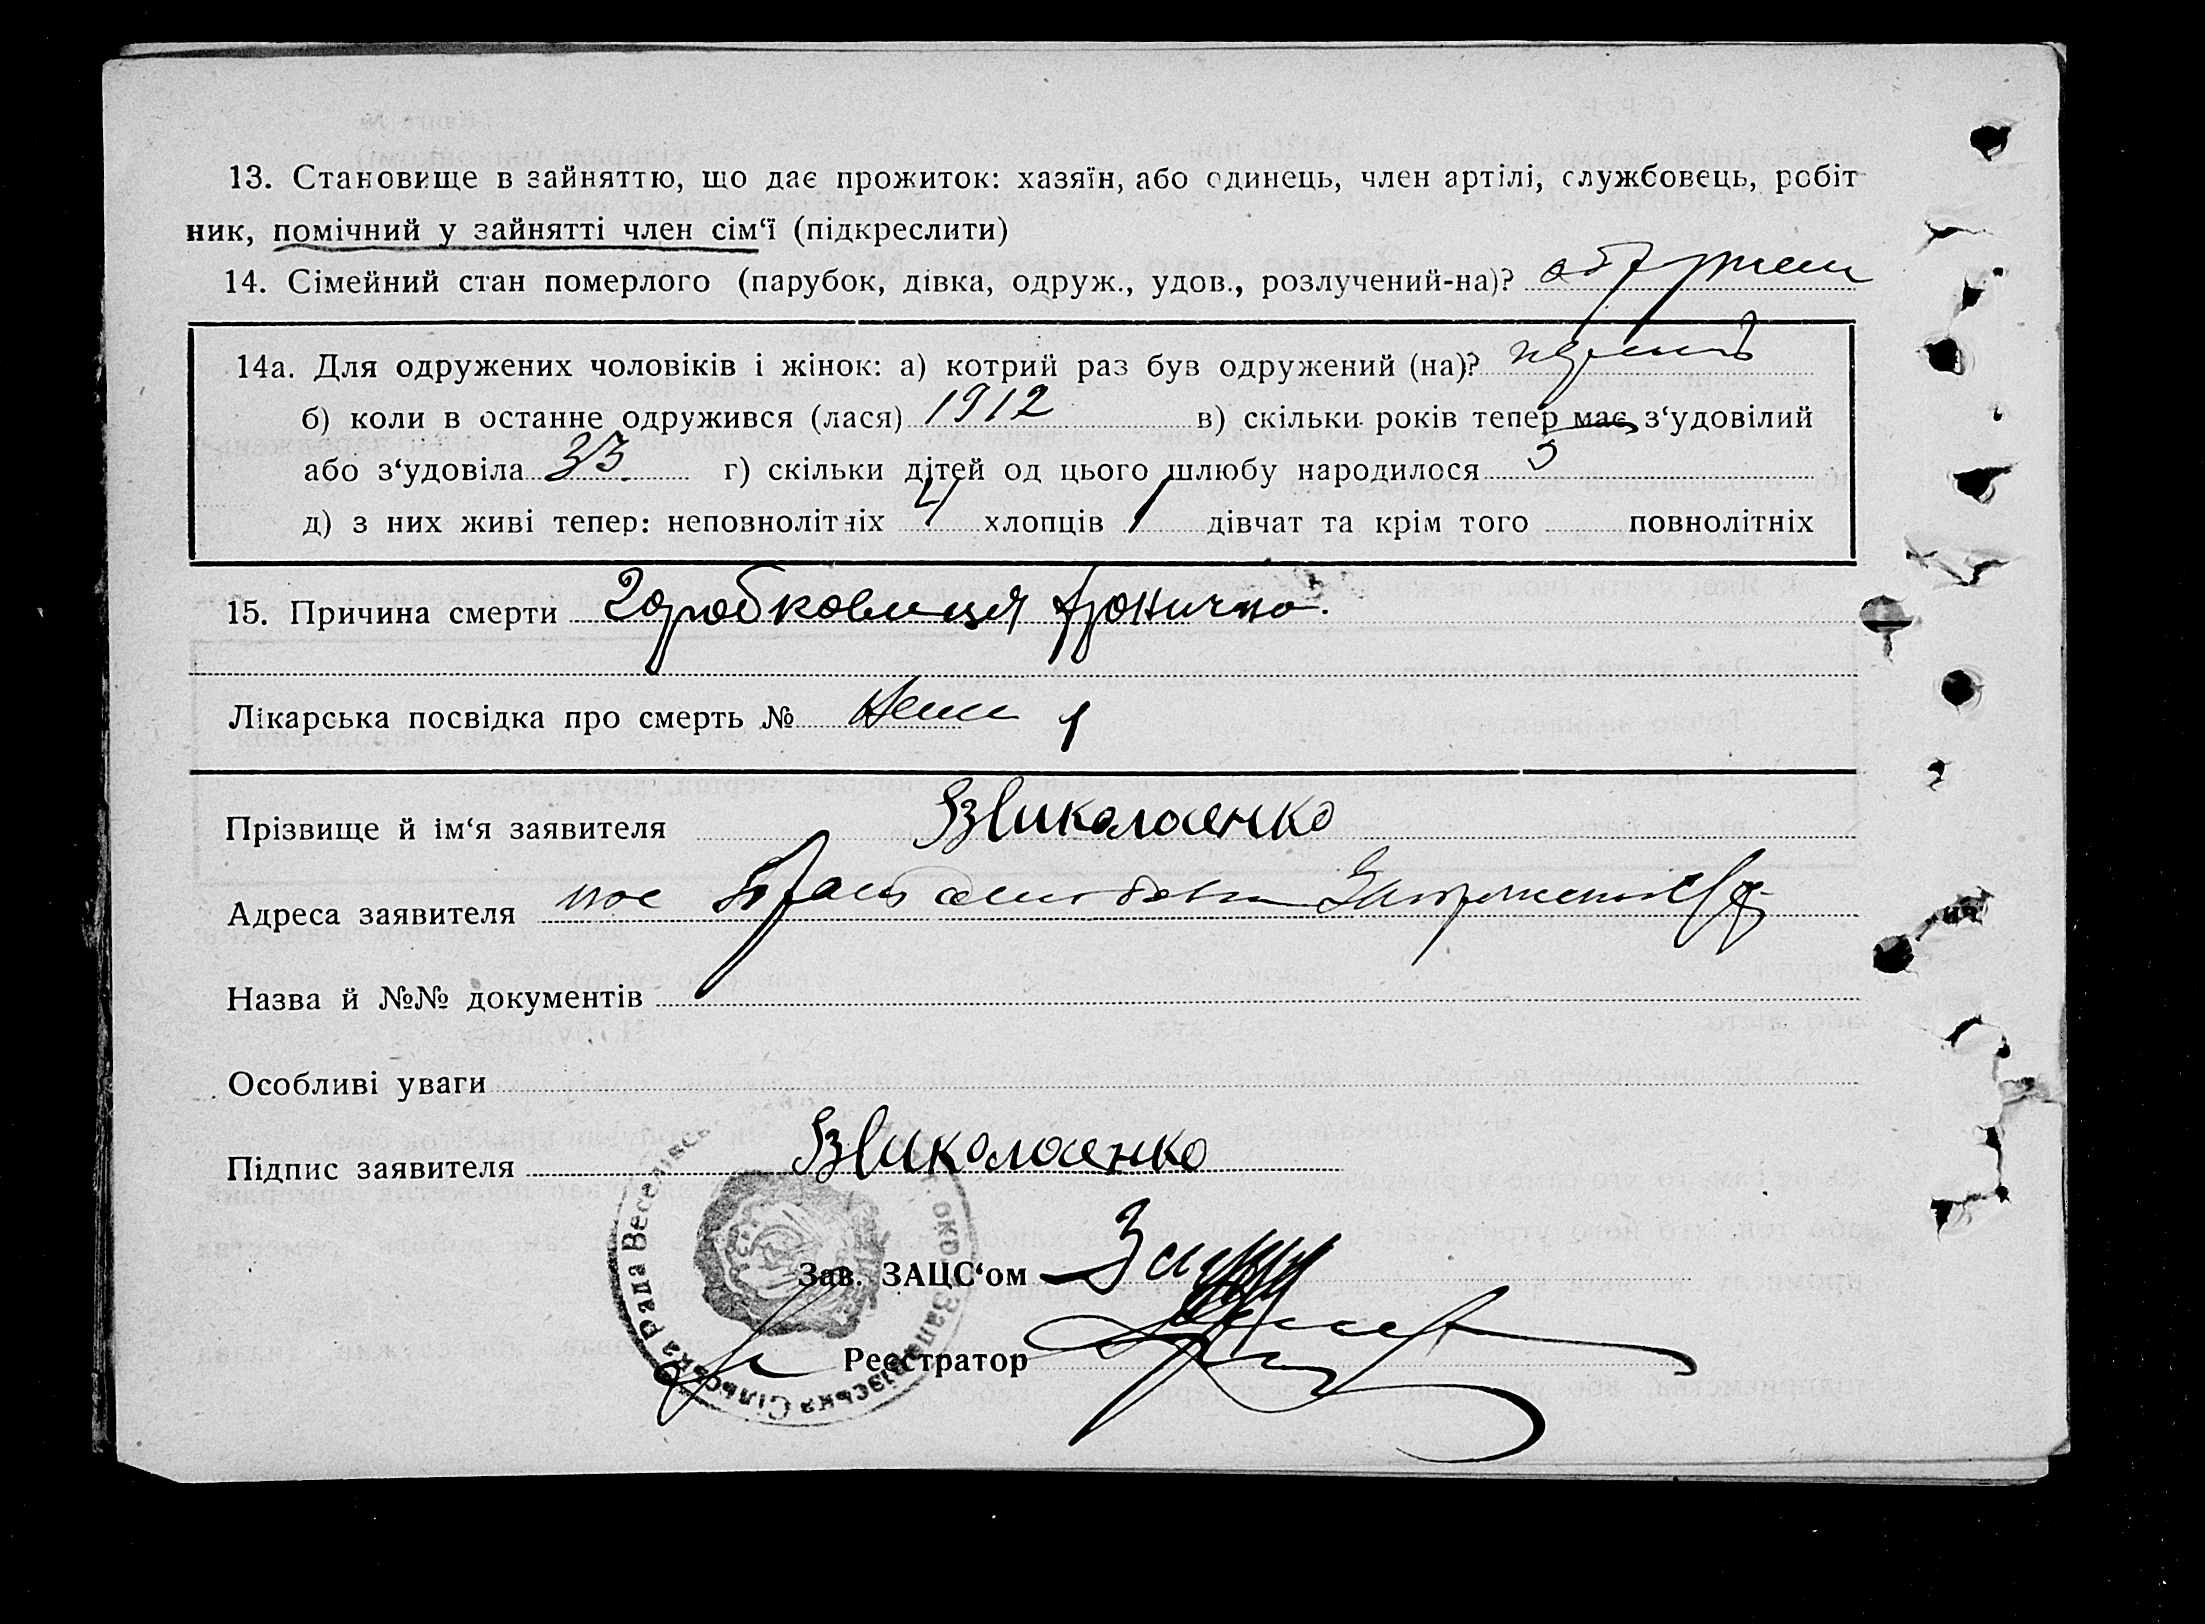 13. Становище в зайняттю, що дає прожиток: хазяїн, або одинець, член артілі, службовець, робіт
ник, помічний у зайнятті член сім‘ї (підкреслити)
14. Сімейний стан померлого (парубок, дівка, одруж., удов., розлучений-на)?
14а. Для одружених чоловіків і жінок: а) котрий раз був одружений (на)?
б) коли в останне одружився (лася) 1912 в) скільки років тепер має з‘удовілий
або з‘удовіла 33 г) скільки дітей од цього шлюбу народилося 5
д) з них живі тепер: неповнолітніх 4 хлопців 1 дівчат та крім того повнолітніх
15. Причина смерти
Лікарська посвідка про смерть №
Прізвище й ім‘я заявителя Николаенко
Адреса заявителя
Назва й №№ документів
Особливі уваги
Підпис заявителя Николаенко
Зав. ЗАЦС‘ом
Реєстратор
Сільська Рада Веселівськ